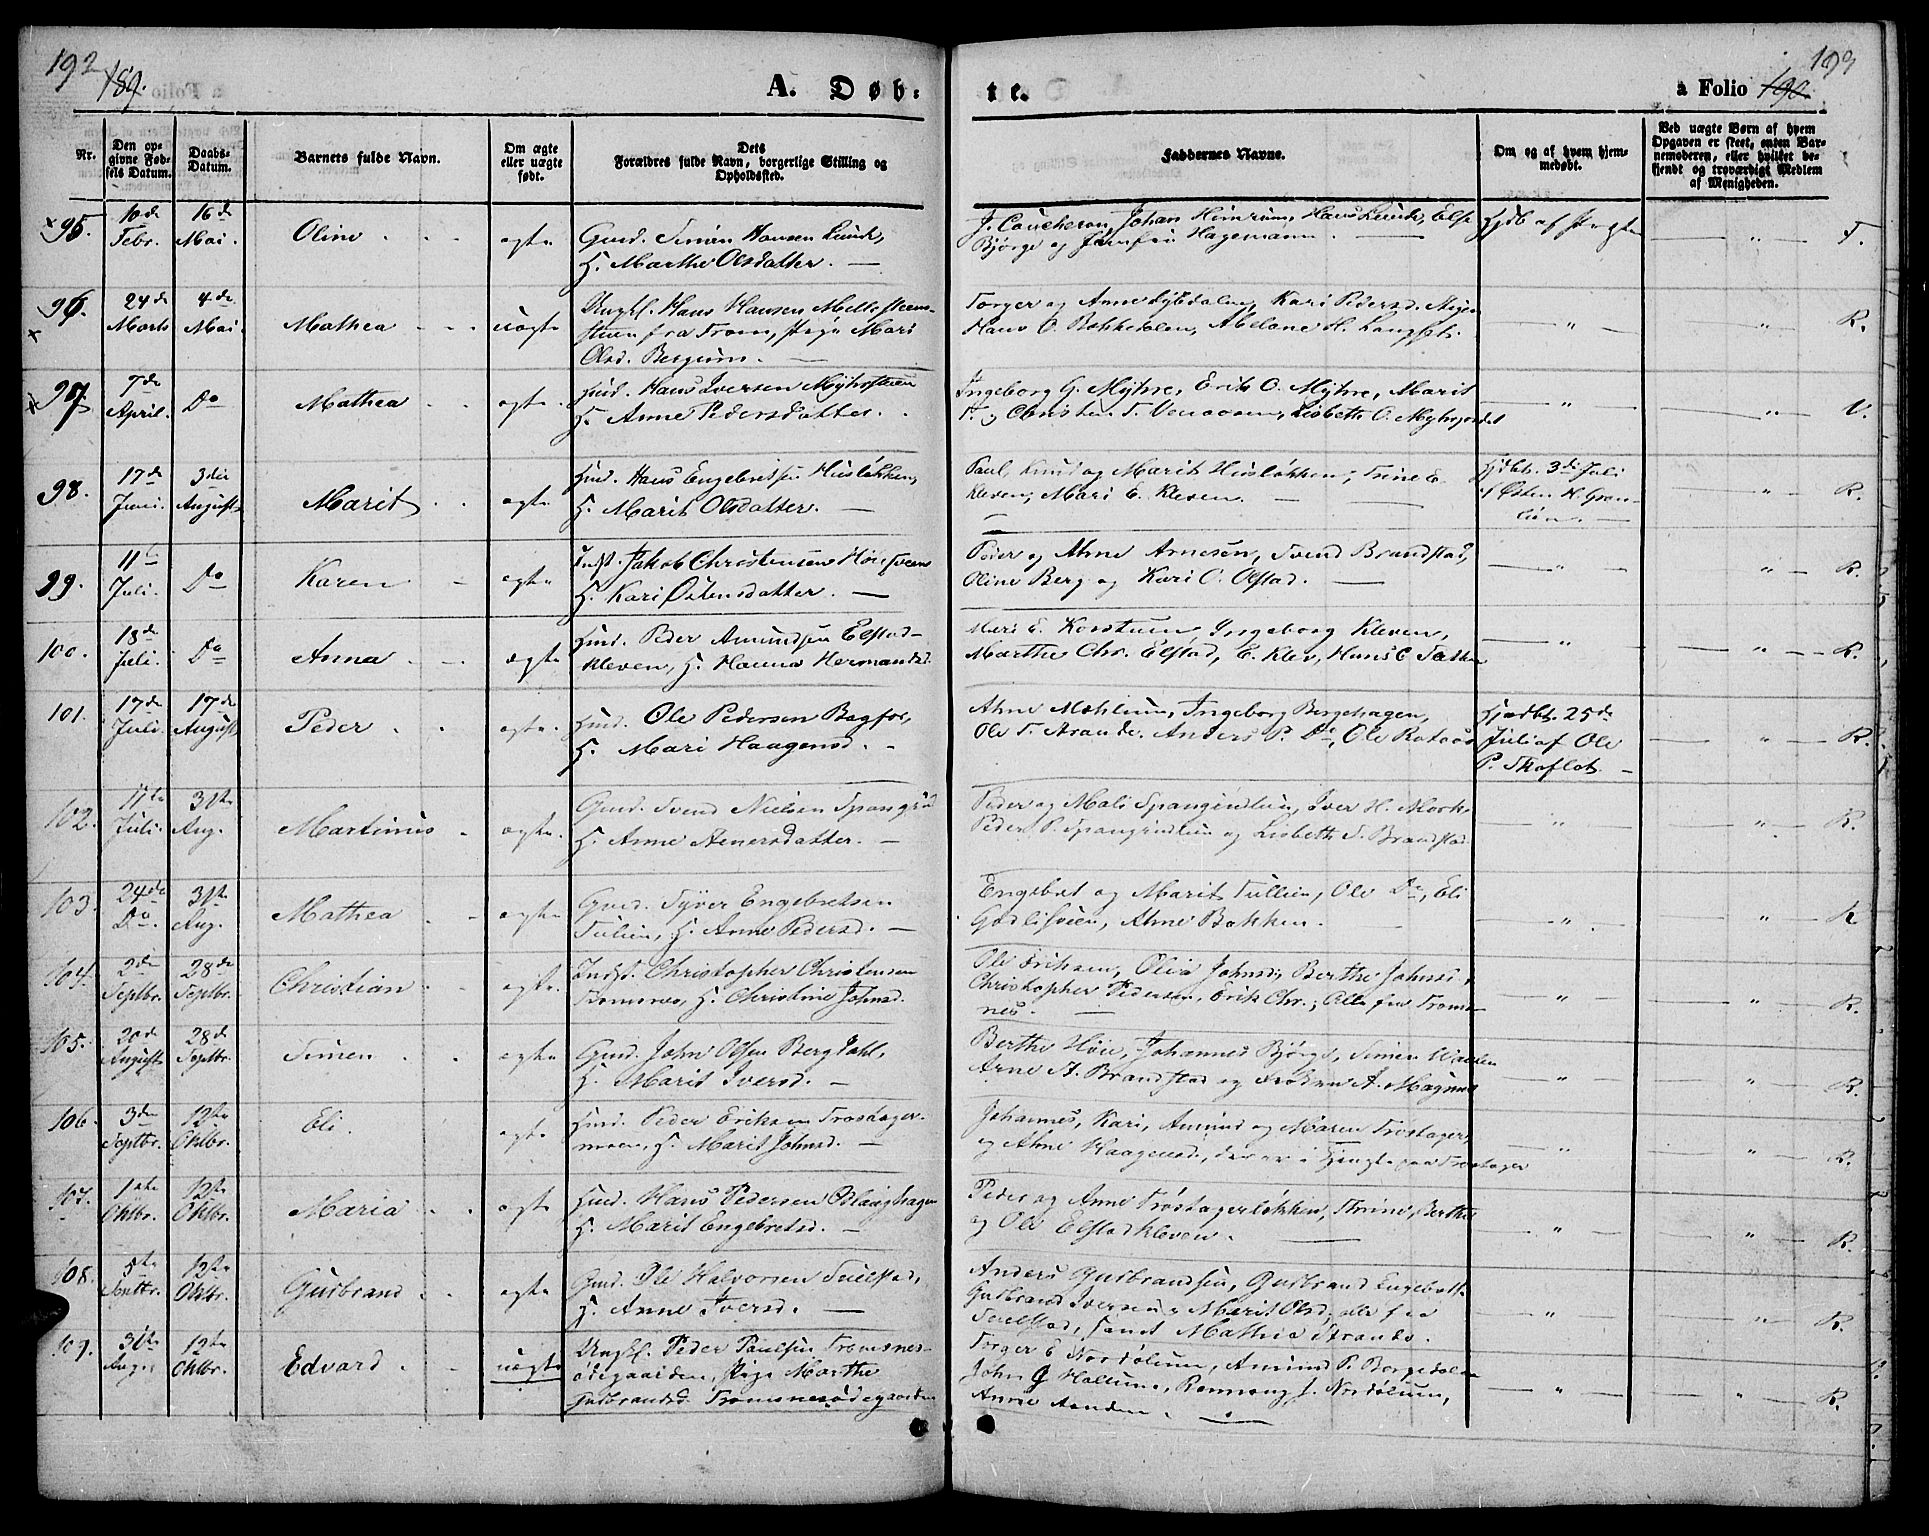 192 189.
A. Døb=
te.
193
a Folio 190.
Nr.
Den op=
givne Fød=
sels Datum.
Daabs=
Datum.
Barnets fulde Navn.
Om ægte
eller uægte
født.
Dets
Forældres fulde Navn, borgerlige Stilling og
Opholdssted.
Faddernes Navne.
Om og af hvem hjem=
medøbt.
Ved uægte Børn af hvem
Opgaven er skeet, enten Bar=
nemoderen, eller hvilket be=
kjendt og troværdigt Medlem
af Menigheden.
95. 10de Febr. 16de Mai. Oline ægte
Gmd. Simen Hansen Lunde,
H. Marthe Olsdatter.
Johan Himrum, Hans Lunde, Else
Bjørge og Jomfru Hagemann.
F.
96. 24de Marts 4de Mai. Mathea uægte
Ungk. Hans Hansen
stuen fra Fron, Pige Mari
Olsd. Bergum.
Torger og Anne Kari Pedersd.
Hans O. Bakkedalen,
R.
97. 7de April. Do Mathea ægte
Husd. Hans Iversen Myhrstuen
H. Anne Pedersdatter.
Ingeborg G. Myhre, Erik O. Myhre, Marit
Lisbeth O. Myhrjordet
V.
98. 17de Juni. 3die August Marit ægte
Husd. Hans Engebretsen Husløkken,
H. Marit Olsdatter.
Paul, Knud og Marit Husløkken, Trine E.
Kleven, Mari E. Kleven.
Hjdbt. 3de Juli
af Østen H. Grøn=
lien.
R.
99. 11te Juli. Do Karen ægte
Indst. Jakob Christensen
H. Kari Østensdatter.
Peder og Ahne Arnesen, Svend Brandstad,
Oline Berg og Kari O. Olstad.
R.
100. 18de Juli. Do Anna ægte
Husd. Peder Amundsen Elstad=
kleven, H. Hanna Hermandsd.
Mari E. Ingeborg Kleven,
Marthe Chr. Elstad, E. Klev, Hans C.
R.
101. 17de Juli. 17de August Peder ægte
Husd. Ole Pedersen Bagfos,
H. Mari Haagensd.
Ahne Mæhlum, Ingeborg Bergehagen,
Ole T. Strande. Anders P. Do, Ole
Hjedbt. 25de
Juli af Ole
P. Skaflot.
R.
102. 17te Juli. 31te Aug. Martinus ægte
Gmd. Svend Nielsen Spangrud
H. Anne Asmersdatter.
Peder og Mali Spangrudlien, Iver H. Mork,
Peder P. Spangrudlien og Lisbeth S. Brandstad.
R.
103. 24de Do. 31te Aug. Mathea ægte
Gmd. Syver Engebretsen
Tulien, H. Anne Pedersd.
Engebret og Marit Tullien, Ole Do, Eli
Godlisveen, Ahne Bakken.
R
104. 2den Septbr. 28de Septbr. Christian ægte
Indst. Christopher Christensen
Tromsnes, H. Christine Johnsd.
Ole Eriksen, Olia Johnsd, Berthe Johnsd,
Christopher Pedersen, Erik Chr., Alle fra Troms=
nes.
R.
105. 20de August 28de Septbr. Simen ægte
Gmd. John Olsen Bergdahl,
H. Marit Iversd.
Berthe Høie, Johannes Bjørge, Simen
Arne A. Brandstad og Frøken A. Magnus
R.
106. 3die Septbr. 12te Oktbr. Eli. ægte
Husd. Peder Eriksen Trøstager=
moen, H. Marit Johnsd.
Johannes, Kari, Amund og Maren Trøstager,
og Ahne Haagensd, der er i paa Trøstager
R.
107. 1ste Oktbr. 12te Oktbr. Maria ægte
Husd. Hans Pedersen Odlaughagen
H. Marit Engebretsd.
Peder og Anne Trøstagerløkken, Berthe
og Ole Elstadkleven.
R.
108. 5te Septbr. 12te Oktbr. Gudbrand ægte
Gmd. Ole Halvorsen Tuelstad,
H. Anne Iversd.
Anders Gudbrandsen, Gudbrand Engebretsen
Gudbrand Iversen, Marit Olsd, alle fra
Tuelstad, samt Mathia Strande.
R.
109. 31te Augst 12te Oktbr. Edvard uægte
Ungk. Peder Paulsen Tromsnes=
ødegaarden, Pige Marthe
Gudbrandsd. Tromsnesødegaarden
Torger E Nordølum, Amund P. Bergedalen
John G Hallum, Rønnaug J. Nordølum,
Anne
R.